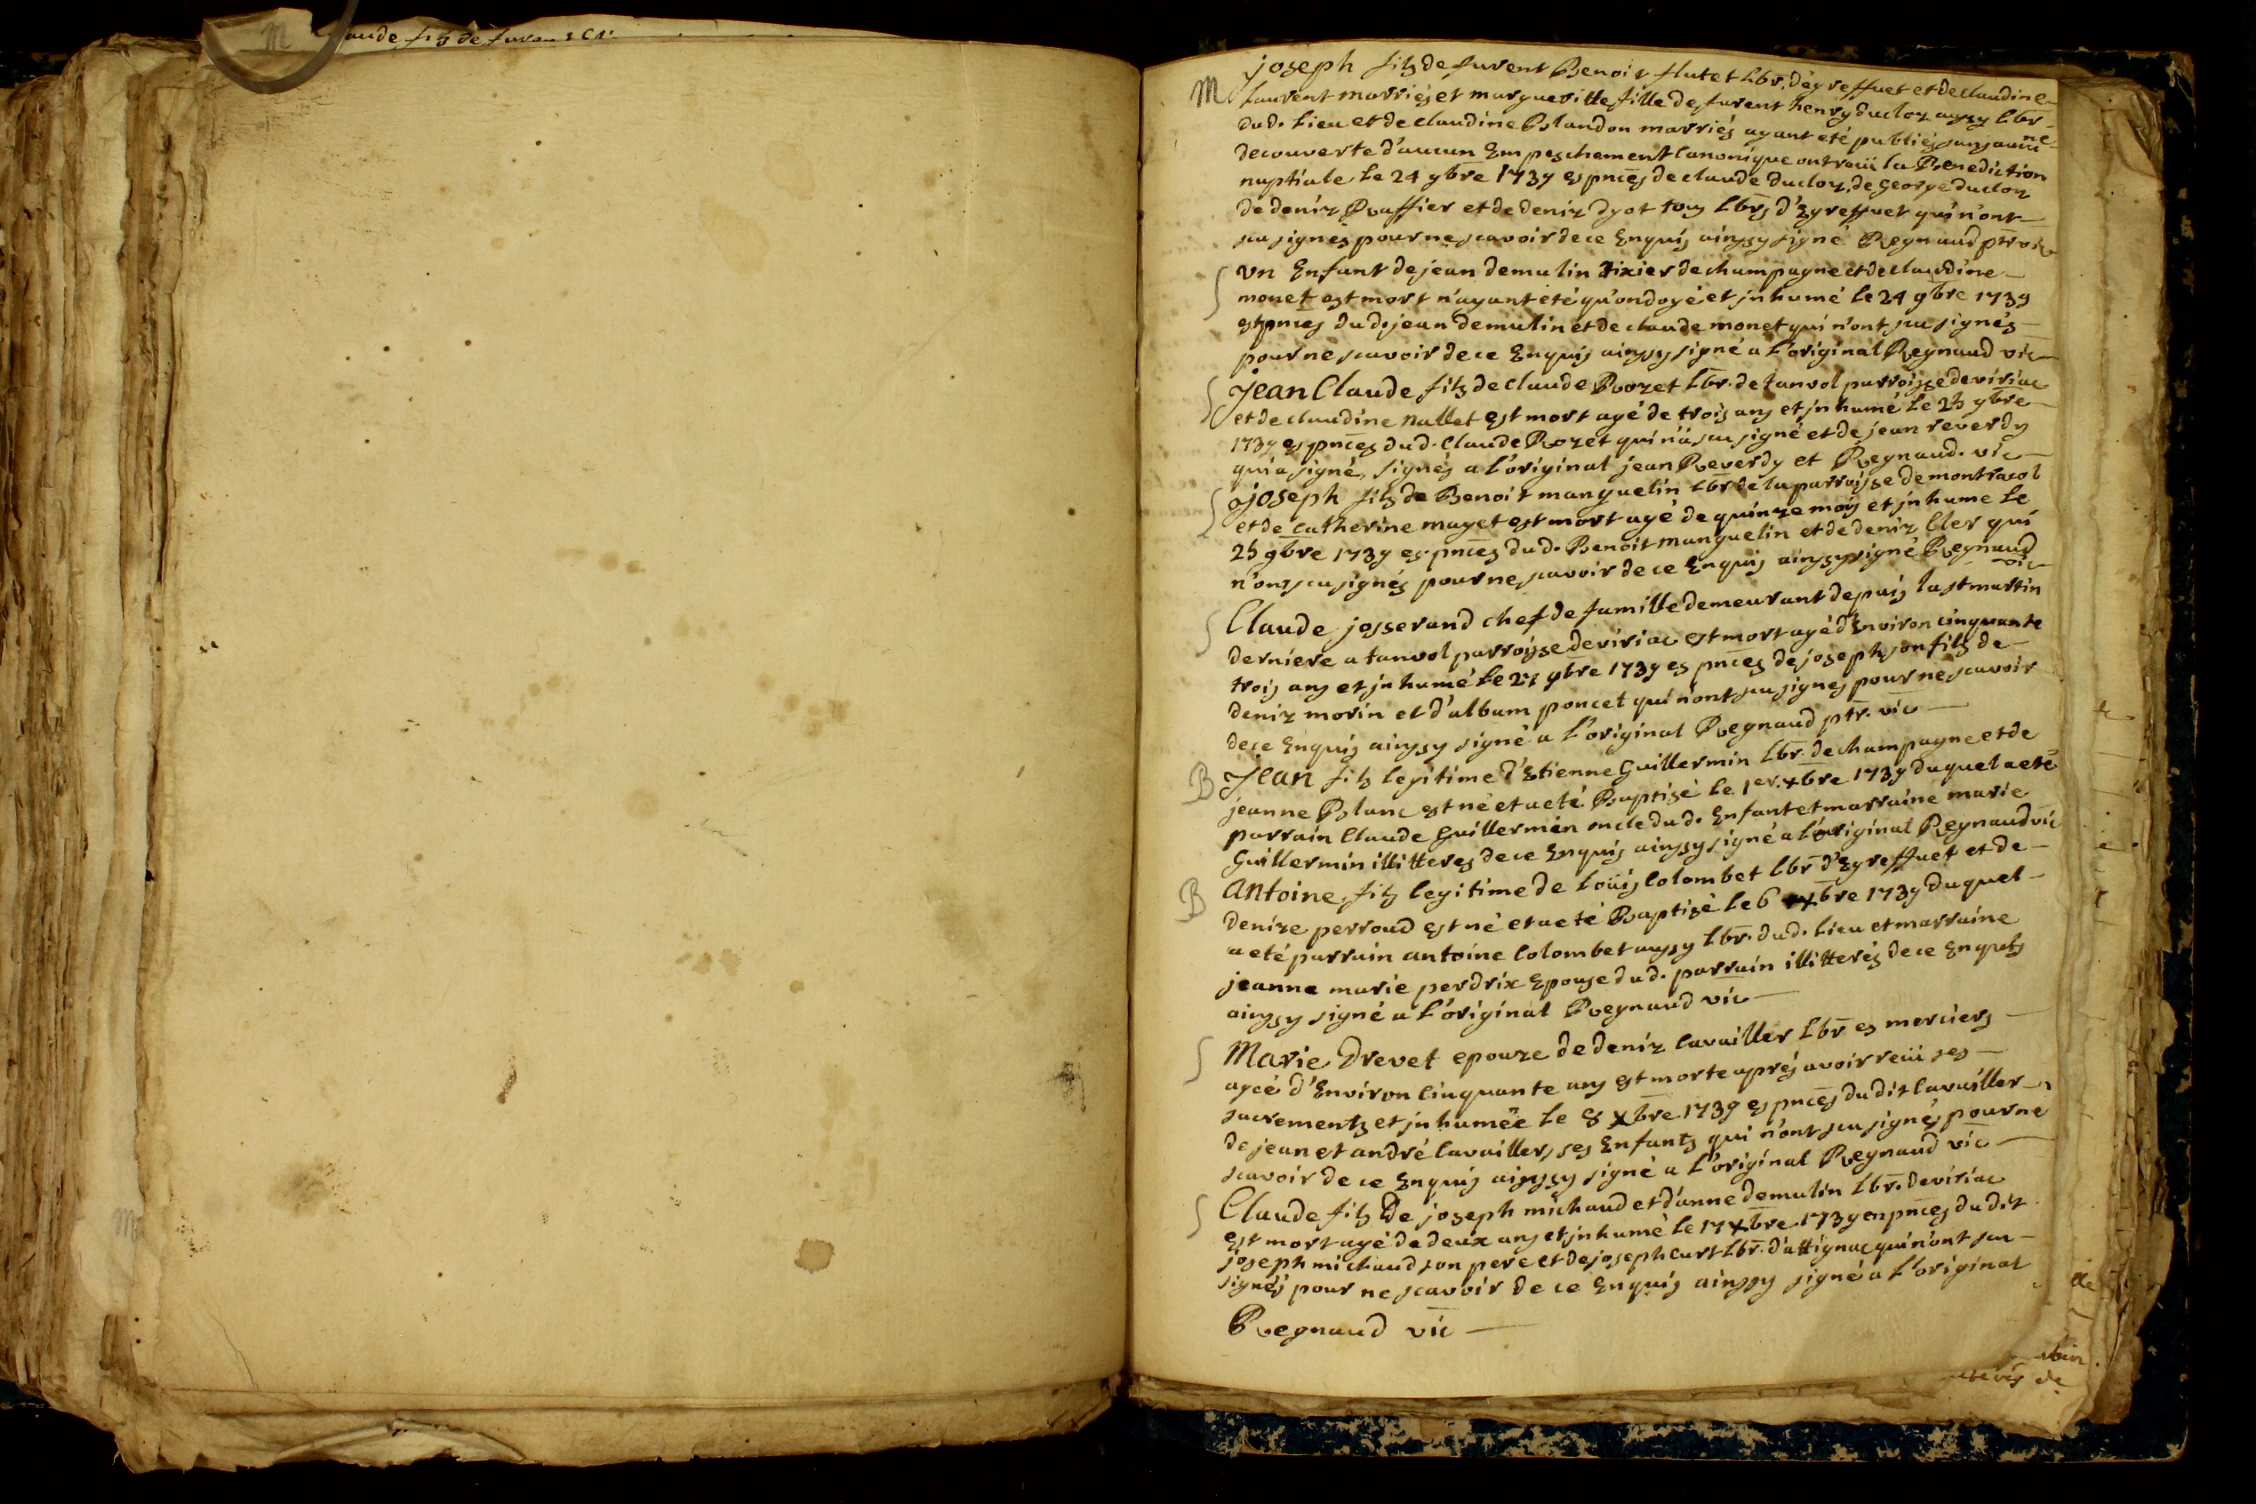 joseph filz de furent Benoit flutet Lbr. d'egreffuet et de claudine
M Laurent marriés et margueritte fille de furent henry ducloz aussy Lbr
dud. Lieu et de claudine Blandon marriés ayant eté publiés sans aucune
decouverte d'aucun Empeschement canonique ont recü la Benediction
nuptiale le 24 9bre 1739 es pnces de claude ducloz, de George ducloz
de deniz Ruffier et de deniz dyot tous Lbrs d'Egreffuet qui n'ont
scu signés pour ne scavoir de ce Enquis ainssy signé Regnaud ptr vic
S un Enfant de jean demulin Tixier de champagne et de claudine
monet est mort n'ayant eté qu'ondoyé et jnhumé le 24 9bre 1739
es pnces dud. jean demulin et de claude monet qui n'ont scu signés
pour ne scavoir de ce Enquis ainssy signé a L'original Regnaud vic
S Jean Claude filz de claude Rozet Lbr. de tanvol parroisse de viriac
et de claudine nallet est mort agé de trois ans et jnhumé le 25 9bre
1739 es pnces dud. Claude Rozet qui n'a scu signé et de jean reverdy
qui a signé, signés a L'original jean Reverdy et Regnaud. vic
S joseph filz de Benoit manguelin Lbr de la parroisse de montracol
et de catherine mayet est mort agé de quinze mois et jnhume le
25 9bre 1739 es pnces dud. Benoit manguelin et de deniz Cler qui
n'ont scu signés pour ne scavoir de ce Enquis ainssy signé Regnaud
vic
S Claude josserand chef de famille demeurant depuis la st martin
derniere a tanvol parroisse de viriac est mort agé d'Environ cinquante
trois ans et jnhumé le 27 9bre 1739 es pnces de joseph son filz de
deniz morin et d'album poncet qui n'ont scu signes pour ne scavoir
de ce Enquis ainssy signé a L'original Regnaud ptr. vic
B Jean filz legitime d'Etienne Guillermin Lbr de champagne et de
jeanne Blanc est né et a eté Baptisé le 1er. xbre 1739 duquel a eté
parrain Claude Guillermin oncle dud. Enfant et marraine marie
Guillermin illitteres de ce Enquis ainssy signé a L'original Regnaud vic
B Antoine filz legitime de Loüis Colombet Lbr d'Egreffuet et de
denize perroud est né et a eté Baptisé le 6 xbre 1739 duquel
a eté parrain antoine Colombet aussy Lbr. dud. Lieu et marraine
jeanne marie perdrix Epouse dud. parrain illitterés de ce Enquis
ainssy signé a L'original Regnaud vic
S Marie Drevet epouze de deniz Cavailler Lbr es merciers
agée d'Environ Cinquante ans est morte aprés avoir reçü ses
sacrementz et jnhumée le 8 xbre 1739 es pnces dudit Cavailler
de jean et andré Cavailler, ses Enfantz qui n'ont scu signés pour ne
scavoir de ce Enquis ainssy signé a L'original Regnaud vic
S Claude filz De joseph michaud et d'anne demulin Lbr. de viriac
est mort agé de deux ans et jnhumé le 17 xbre 1739 en pnces dudit
joseph michaud son pere et de joseph curt Lbr. d'attignac qui n'ont scu
signés pour ne scavoir de ce Enquis ainssy signé a L'original
Regnaud vic